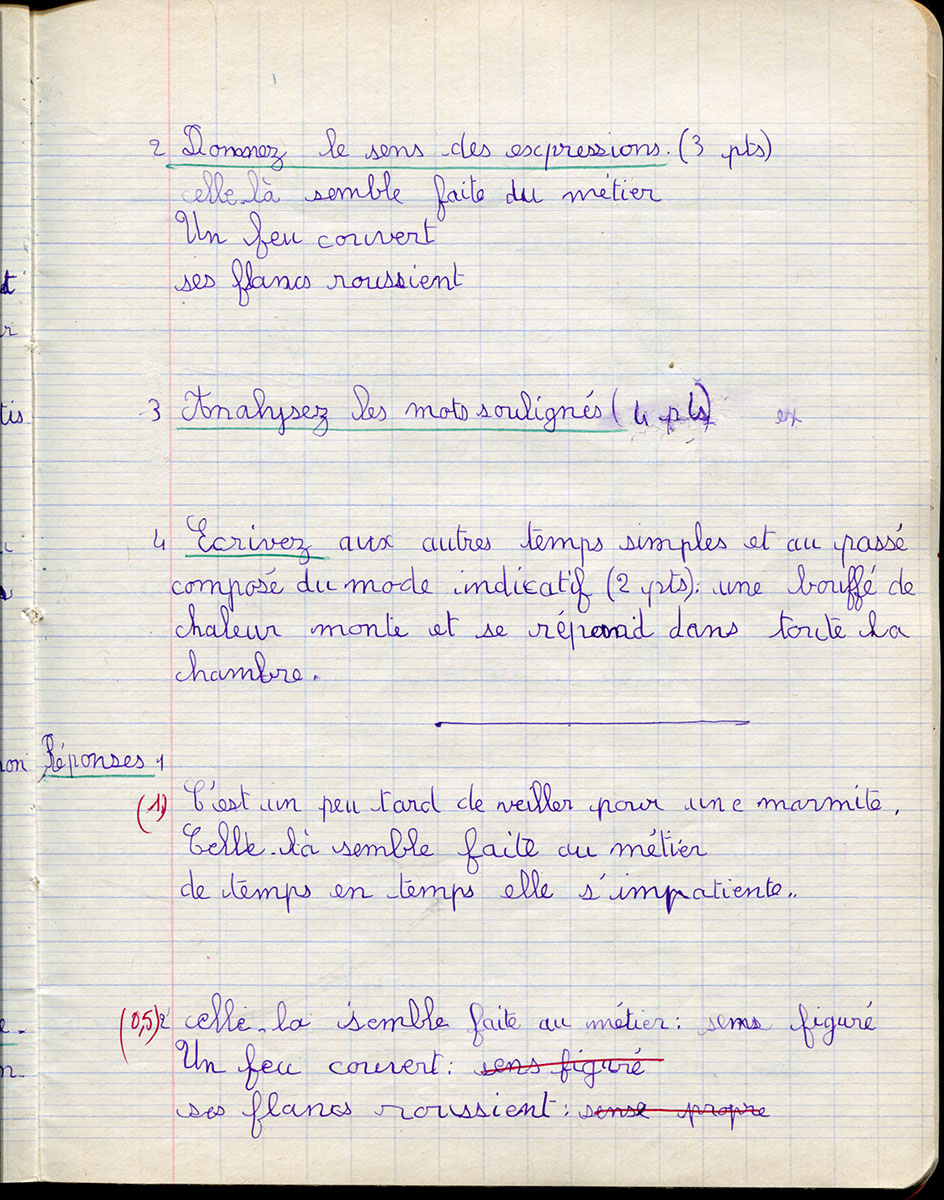 2 Donnez le sens des expressions. (3 pts)
celle-là semble faite du métier
Un feu couvert
ses flancs roussient
3 Analysez les mots soulignés (4 pts)
4 Ecrivez aux autres temps simples et au passé
composé du mode indicatif (2 pts): une bouffé de
chaleur monte et se répand dans toute la
chambre.
on Réponses 1
(1) C'est un peu tard de veiller pour une marmite.
Celle-là semble faite au métier
de temps en temps elle s'impatiente..
(0,5) 2 celle-la semble faite au métier: sens figuré
Un feu couvert: sens figuré
ses flancs roussient: sense propre